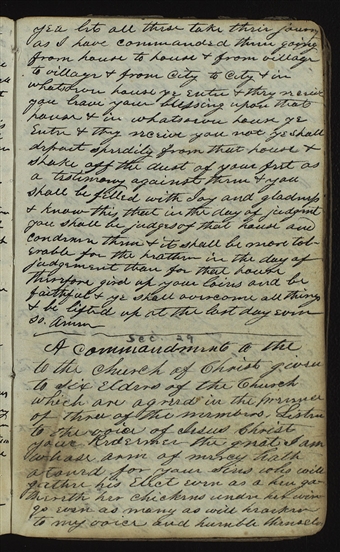 yea let all these take their journ
as I have commanded them going
from house to house & from village
to village & from City to City & in
whatsoever house ye Enter & they receive
you leave your blessing upon that
house & in whatsoever house ye
Enter & they receive you not ye shall
depart speedily from that house &
shake off the dust of your feet as
a testimony against them & you
shall be filled with Joy and gladness
& know this that in the day of judgment
you shall be judges of that house and
condemn them & it shall be more tol-
erable for the heathen in the day of
judgement than for that house
therefore gird up your loins and be
faithful & ye shall overcome all things
& be lifted up at the last day even
so. Amen
Sec. 29
A Commandment to the
to the Church of Christ given
to six Elders of the Church
which are agreed in the presence
of three of the members. Listen
to the voice of Jesus Christ
your Redeemer the great I am
whose arm of mercy hath
atoned for your Sins who will
gether his Elect even as a hen ga-
thereth her chickens under her wings
even as many as will hearken
to my voice and humble themselves